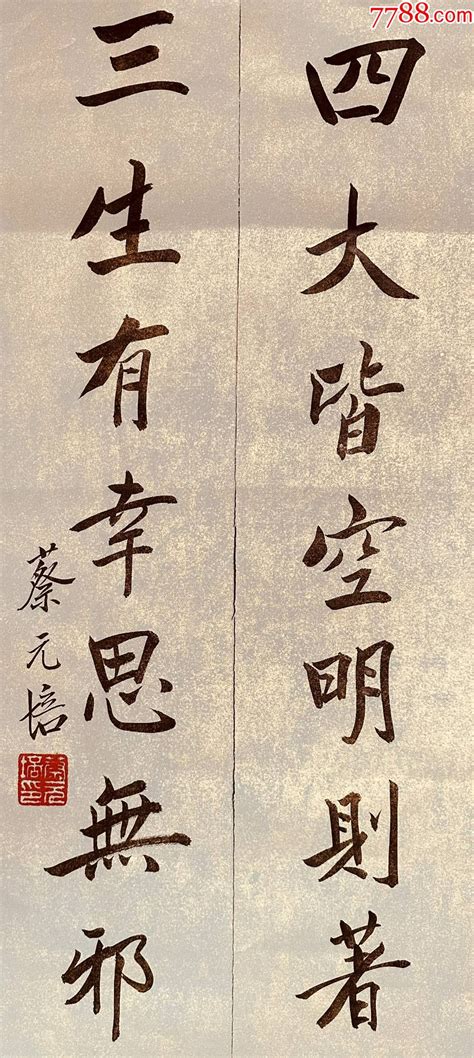 7788.com
四大皆空明則著
三生有幸思無邪
蔡元培